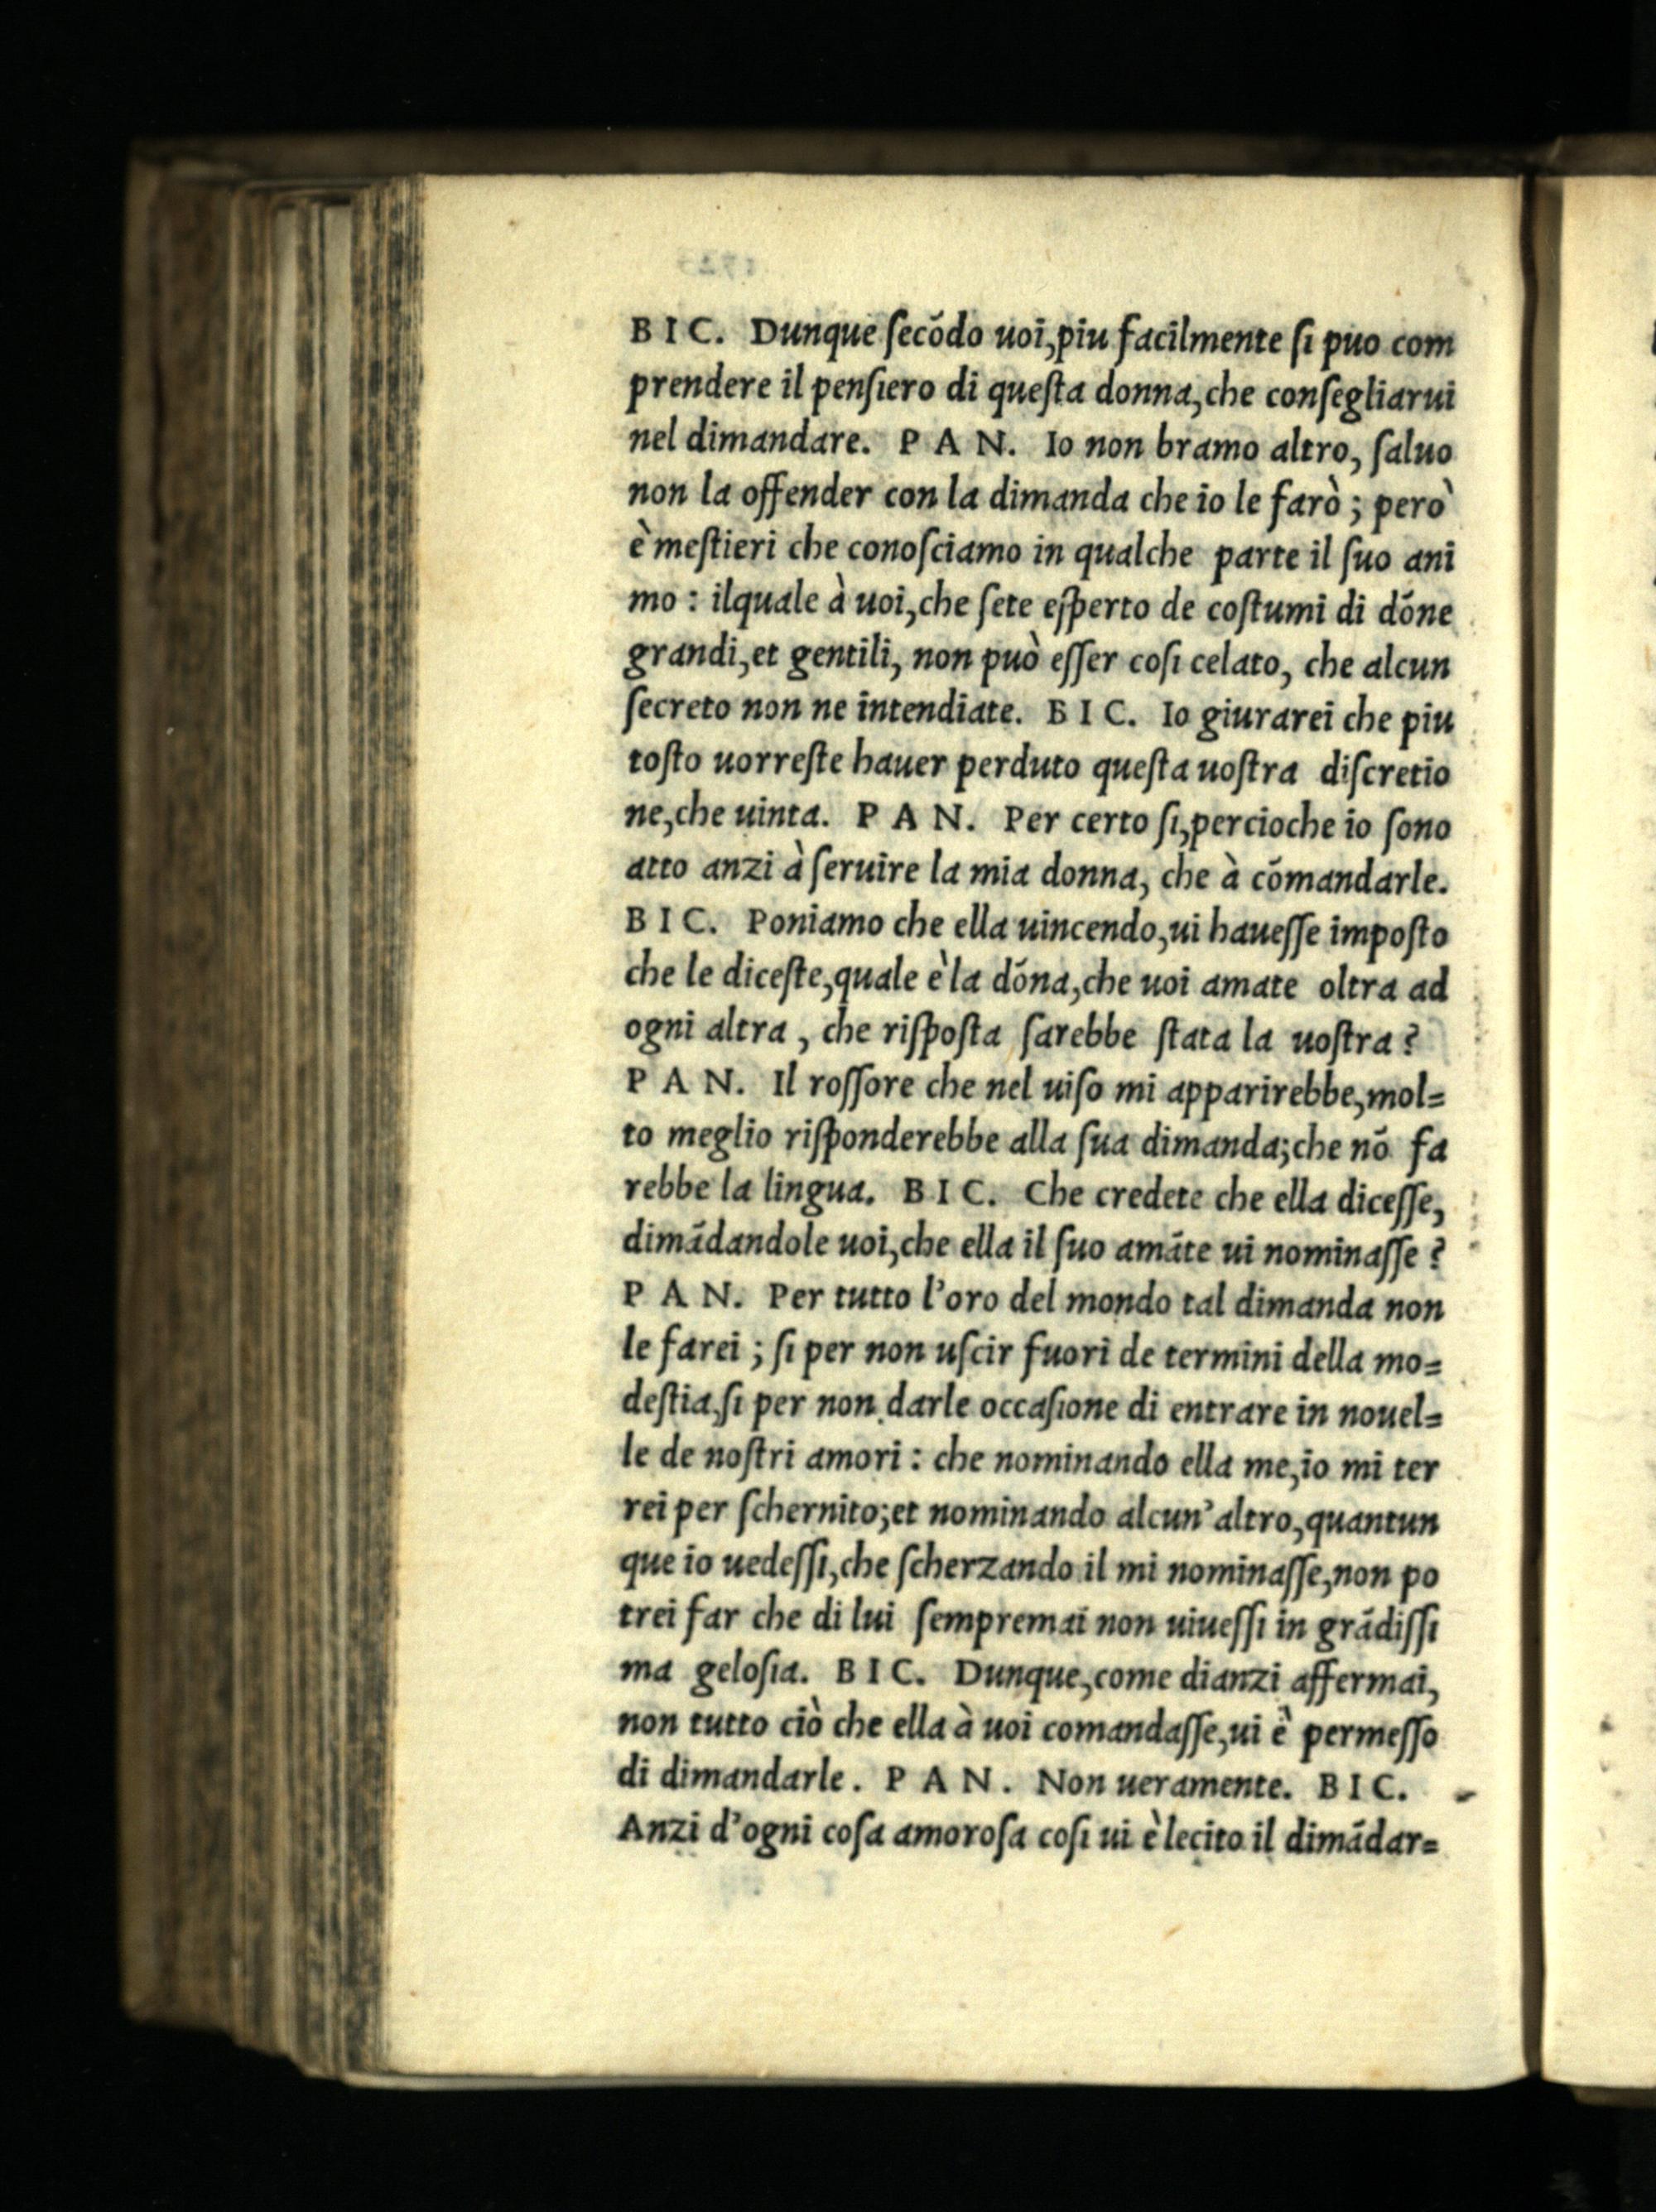 B I C. Dunque ſecõdo uoi,piu facilmente ſi puo com
prendere il penſiero di queſta donna,che conſegliarui
nel dimandare. P A N. Io non bramo altro, ſaluo
non la offender con la dimanda che io le farò ; però
è meſtieri che conoſciamo in qualche parte il ſuo ani
mo : ilquale à uoi,che ſete eſperto de coſtumi di dõne
grandi,et gentili, non può eſſer coſi celato, che alcun
ſecreto non ne intendiate. B I C. Io giurarei che piu
toſto uorreſte hauer perduto queſta uoſtra diſcretio
ne,che uinta. P A N. Per certo ſi,percioche io ſono
atto anzi à ſeruire la mia donna, che à cõmandarle.
B I C. Poniamo che ella uincendo,ui haueſſe impoſto
che le diceſte,quale è la dõna,che uoi amate oltra ad
ogni altra , che riſpoſta ſarebbe ſtata la uoſtra ?
P A N. Il roſſore che nel uiſo mi apparirebbe,mol=
to meglio riſponderebbe alla ſua dimanda;che nõ fa
rebbe la lingua. B I C. Che credete che ella diceſſe,
dimãdandole uoi,che ella il ſuo amãte ui nominaſſe ?
P A N. Per tutto l'oro del mondo tal dimanda non
le farei ; ſi per non uſcir fuori de termini della mo=
deſtia,ſi per non darle occaſione di entrare in nouel=
le de noſtri amori : che nominando ella me,io mi ter
rei per ſchernito;et nominando alcun'altro,quantun
que io uedeſſi,che ſcherzando il mi nominaſſe,non po
trei far che di lui ſempremai non uiueſſi in grãdiſſi
ma geloſia. B I C. Dunque,come dianzi affermai,
non tutto ciò che ella à uoi comandaſſe,ui è permeſſo
di dimandarle. P A N. Non ueramente. B I C.
Anzi d'ogni coſa amoroſa coſi ui è lecito il dimãdar=